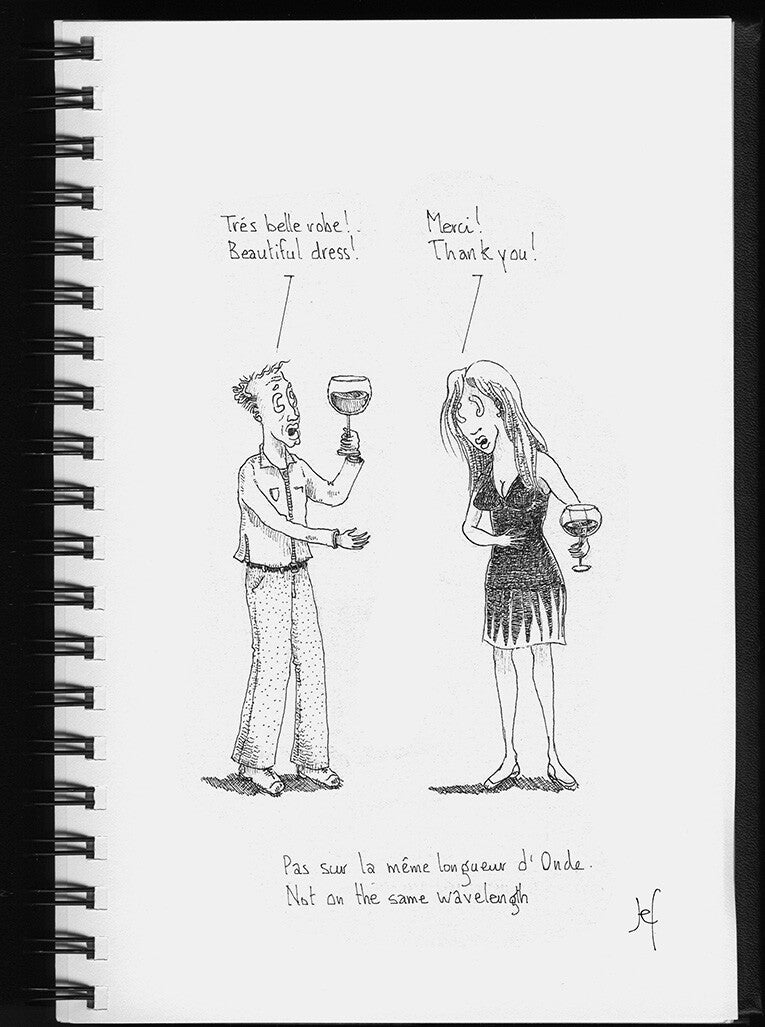 Trés belle robe!.
Beautiful dress!
Merci!
Thank you!
Pas sur la même longueur d'Onde.
Not on the same wavelength
Jef